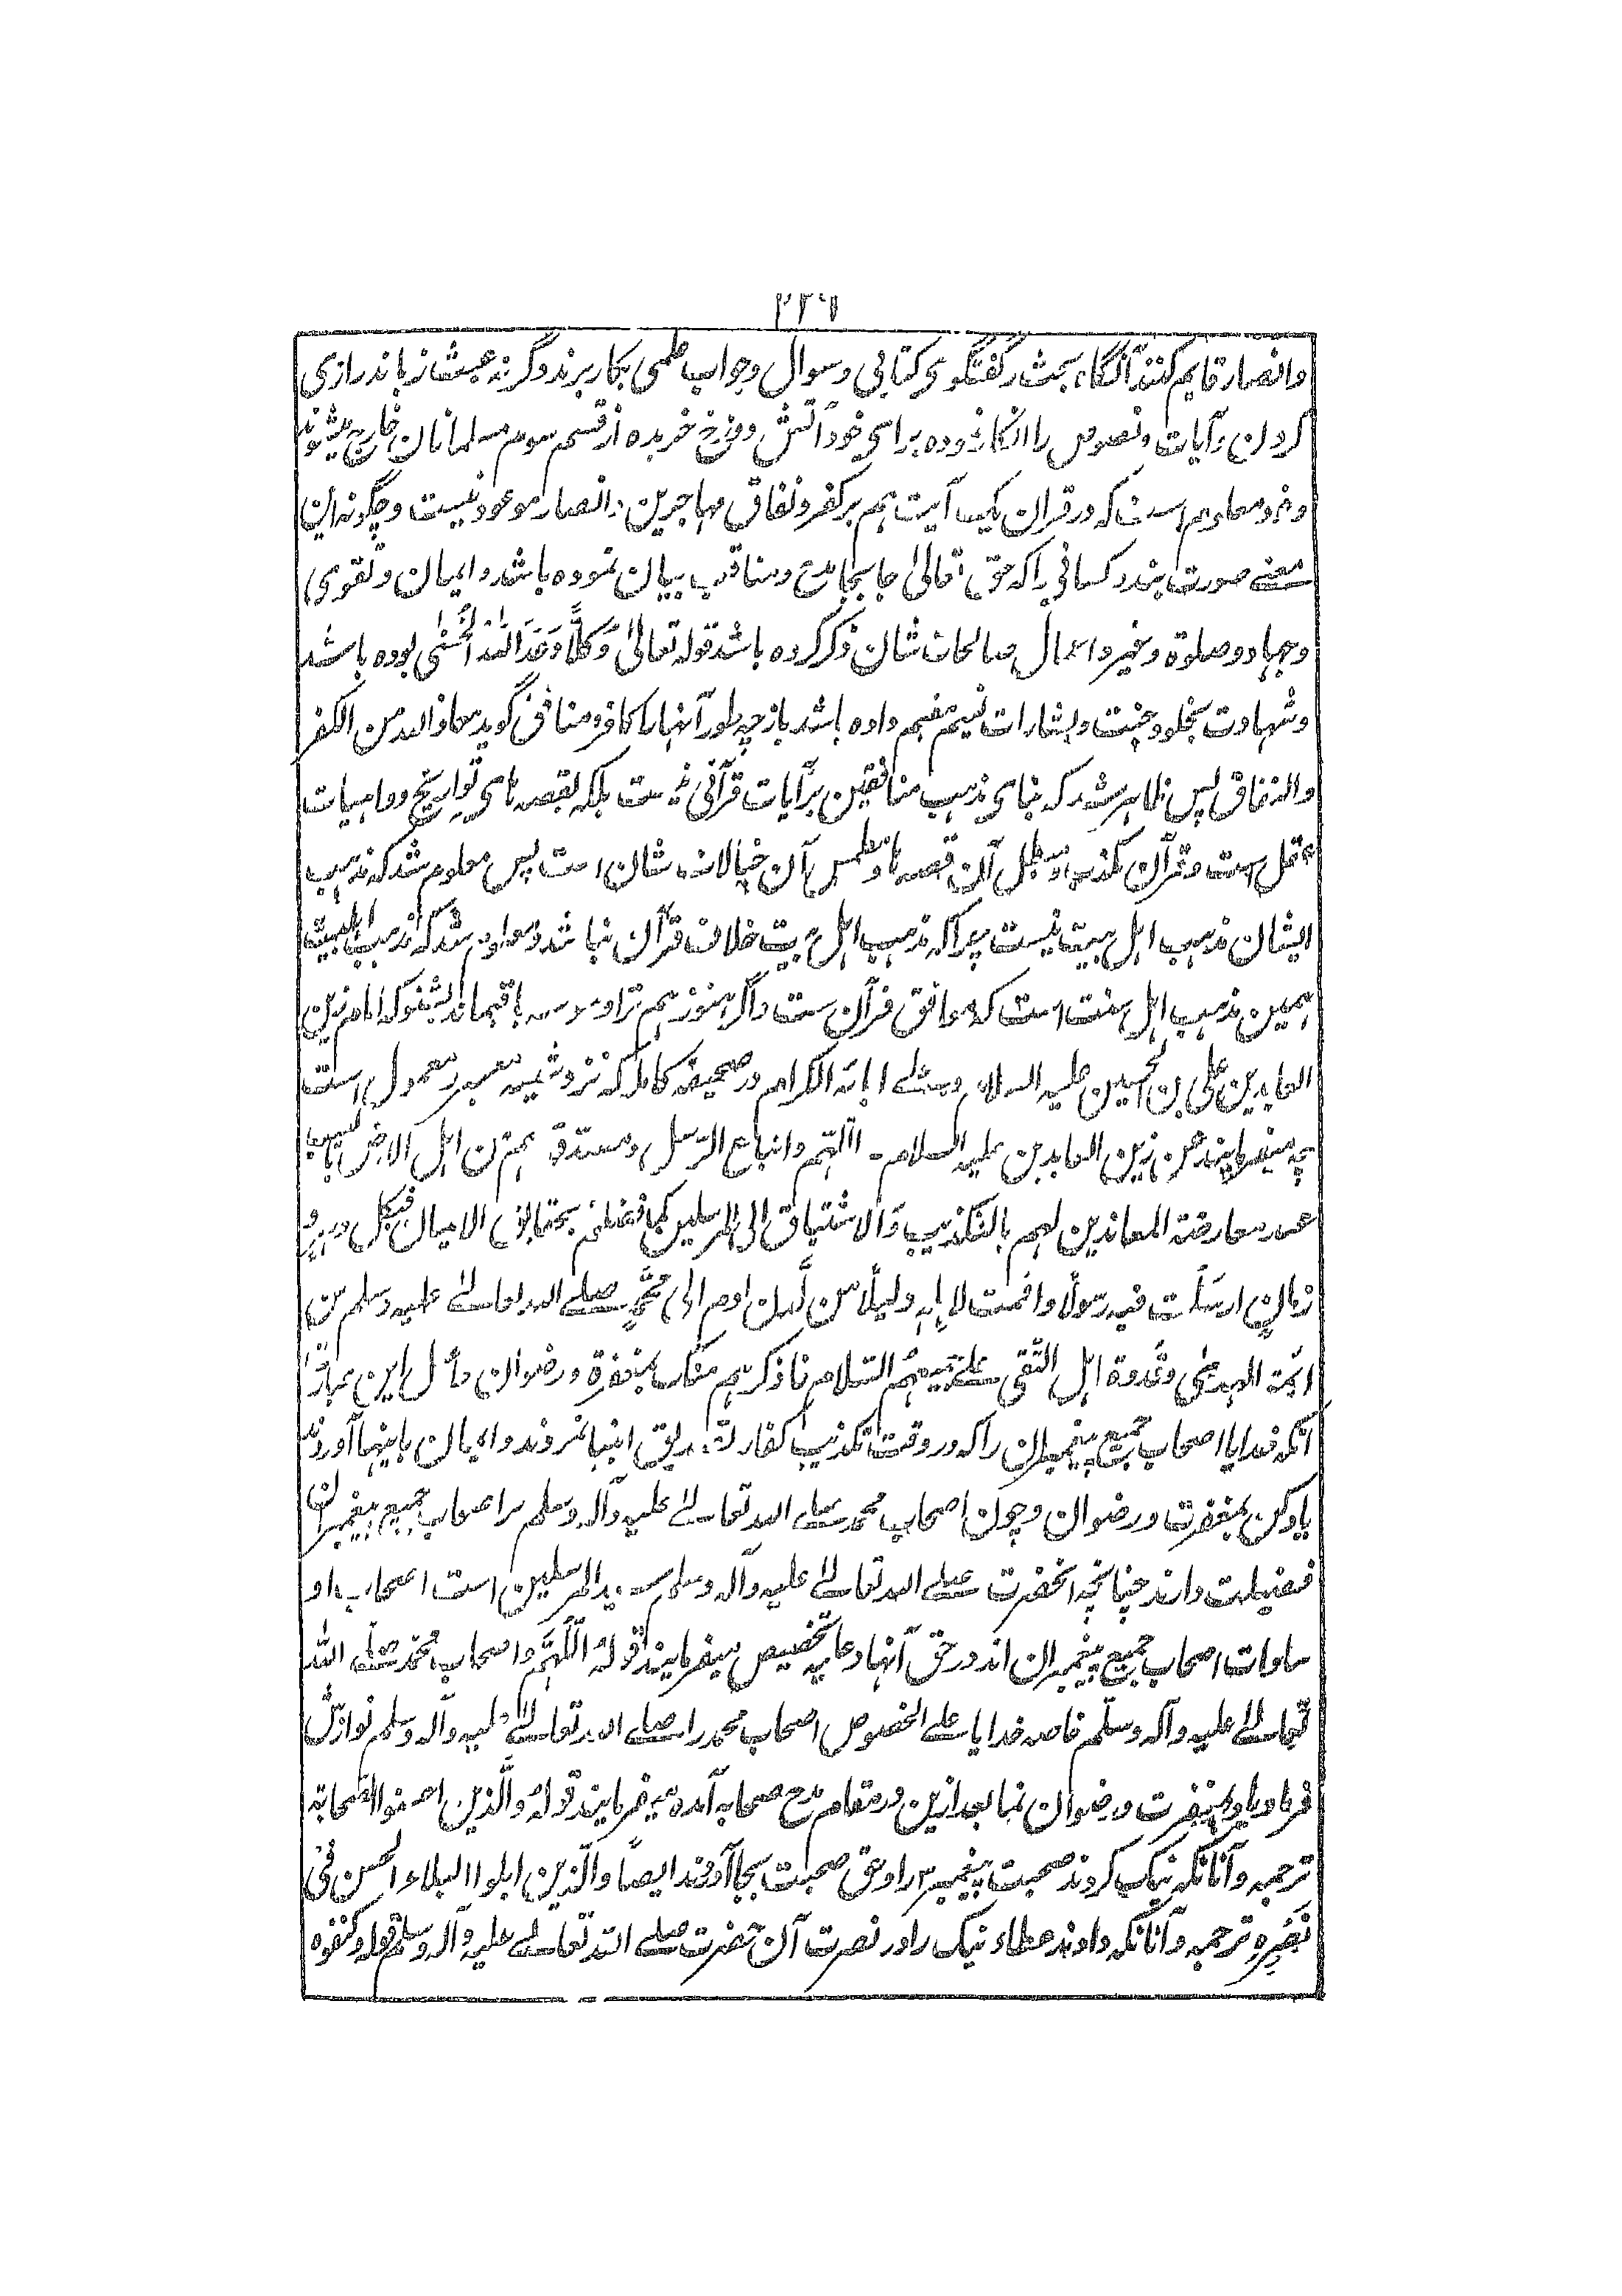 ۲۲۶
وانصار قایم کنند آنگاه بحث و گفتگوی کتابی و سوال وجواب علمی بکار برند و گرنه عبث زباندرازی
کردن و آیات ونصوص را انکار نموده برای خود آتش دوزخ خریده از قسم سوم مسلمانان خارج میشوند
و خود معلوم است که در قران یک آیت هم بر کفر و نفاق مهاجرین و انصار موعود نیست و چگونه این
معنے صورت بندد کسانی را که حق تعالیٰ جابجا مدح و مناقب بیان نموده باشد و ایمان و تقوی
وجهاد و صلوة وغیره اعمال صالحات شان ذکر کرده باشد قوله تعالیٰ وَكُلًّا وَعَدَ اللهُ الْحُسْنٰی بوده باشد
وشهادت بخلود جنت وبشارات نعیم مقیم داده باشد باز چه طور آنها را کافر و منافق گوید معاذ الله من الکفر
والنفاق پس ظاهر شد که بنای مذهب منافقین بر آیات قرآنی نیست بلکه بقصه های تواریخ و واهیات
عقل است وقرآن مکذب و مبطل آن قصه ها و آن خیالات شان است پس معلوم شد که مذهب
ایشان مذهب اهل بیت نیست چراکه مذهب اهل بیت خلاف قرآن نباشد و معلوم شد که مذهب اهلبیت
همین مذهب اهل سنت است که موافق قرآن ست و اگر هنوز هم ترا وسوسه باقیماند بشنو که امام زین
العابدین علی بن الحسین علیه السلام وعلے ابائه الکرام در صحیفه کامله که نزد شیعه معتبر و معمول است
چه میفرمایند عن زین العابدین علیه السلام ۔ اللّهم واتباع الرسل ومصدقوهم من اهل الارض بالغیب
عند معارضة المعاندین لهم بالتکذیب وَالاشتیاق الی المرسلین بحقایق الایمان فیکل دهر و
زمانٍ ارسَلْت فیه رسولًا واقمت لاهله دلیلًا من لَّدن اٰدم الیٰ مُحَمَّدٍ صلے الله تعالےٰ علیه وسلم من
ائمة الهدیٰ وقدوة اهل التُّقی علیٰ جمیعهم السّلام فاذکرهم منک بمغفرة ورضوان حاصل این عبارت
آنکه خدایا اصحاب جمیع پیغمبران را که در وقت تکذیب کفار تصدیق انبیا نمودند و ایمان باینها آوردند
یاد کن بمغفرت ورضوان و چون اصحاب محمد صلے الله تعالےٰ علیه وآله وسلم بر اصحاب جمیع پیغمبران
فضیلت دارند چنانچه انحضرت صلے الله تعالےٰ علیه وآله وسلم سید المرسلین است اصحاب او
سادات اصحاب جمیع پیغمبران اند در حق آنها دعا به تخصیص میفرمایند قولهُ اَللّٰهُمَّ وَاصحاب محمّد صلی الله
تعالےٰ علیه وآله وسلّم خاصه خدایا علے الخصوص اصحاب محمد را صلے الله تعالےٰ علیه وآله وسلم نوازش
فرما و یاد بمغفرت ورضوان نما بعد ازین در مقام مدح صحابه آمده میفرمایند قولهُ وَالَّذین احسنوا الصّحابة
ترجمه وآنانکه نیک کردند صحبت پیغمبر را وحق صحبت بجا آوردند ایضاً وَالّذین ابلوا البلاء الحسن فی
نَصْرِهٖ ترجمه وآنانکه دادند عطاء نیک را در نصرت آن حضرت صلے الله تعالےٰ علیه وآله وسلم قوله وکنفوه